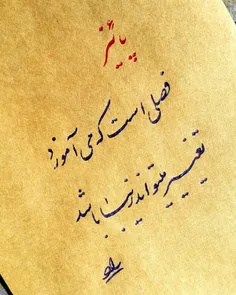 پائیز
فصلی است که می آموزد
تغییر میتواند زیبا باشد